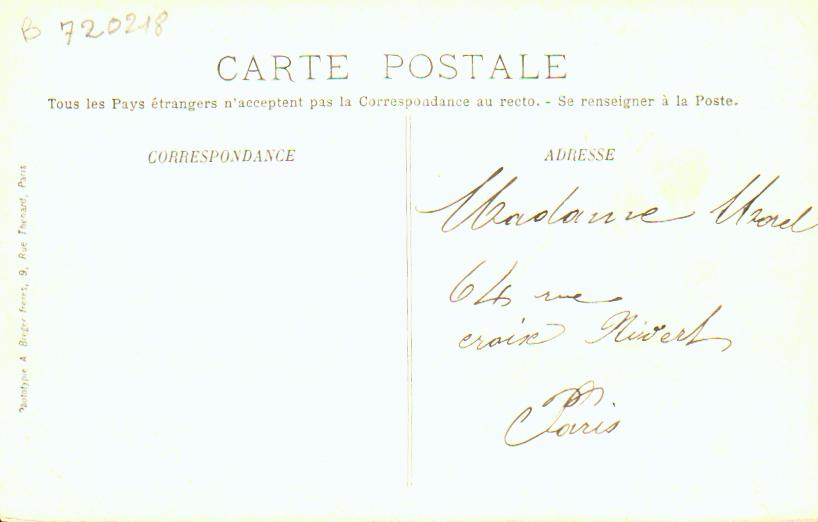 B 720218
CARTE POSTALE
Tous les Pays étrangers n'acceptent pas la Correspondance au recto. - Se renseigner à la Poste.
CORRESPONDANCE
ADRESSE
Madame Morel
64 rue
croix Nivert
Paris
Phototypie A Berger frères, 9, Rue Thénard, Paris